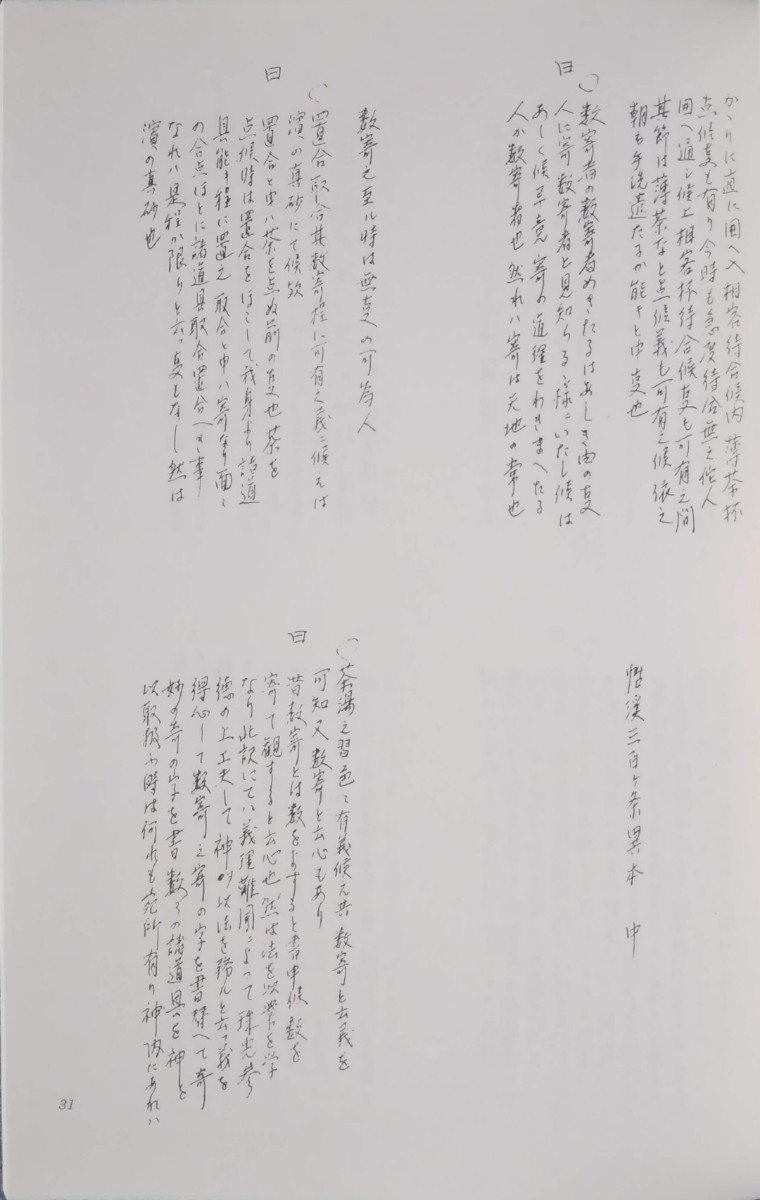 かゝりに直に囲へ入相客待合候内薄茶杯
点候夏も有り今時も急度待合無之他人
囲へ通シ候上相客杯待合候夏も可有之間
其節は薄茶なと点候義も可有之候依之
朝も手洗遣たるか能キと申夏也
○数寄者の数寄者めきたるはあしき由の夏
曰
人に寄数寄者と見知らるゝ様ニいたし候は
あしく候畢竟寄の道理をわきまへたる
人か数寄者也然れハ寄は天地の常也
数寄之至ル時は無夏の可為人
○置合取合其数寄程に可有之義ニ候へは
濱の真砂にて候欤
曰
置合と申ハ茶を点ぬ前の夏也茶を
点候時は置合をほこして我身より諸道
具能キ程に置之取合と申ハ寄なり面々
の合点ほとに諸道具取合置合へき事
なれハ是程か限りと云つ夏もなし然は
濱の真砂也
悟溪三百ヶ条異本 中
○茶湯之習色々有義候へ共数寄と云義を
可知又数寄と云心もあり
曰
昔数寄とは数をよすると書申候数を
寄て観すると云心也然は法を以業を学
なり此訳にてハ義理難聞によって珠光参
徳の上工夫して神以法を務ルと云つ義を
得心して数寄之寄の字を書替へて奇
妙の奇の字を書数々の諸道具を神を
以取扱ふ時は何れも
所有り神内にあれハ
31